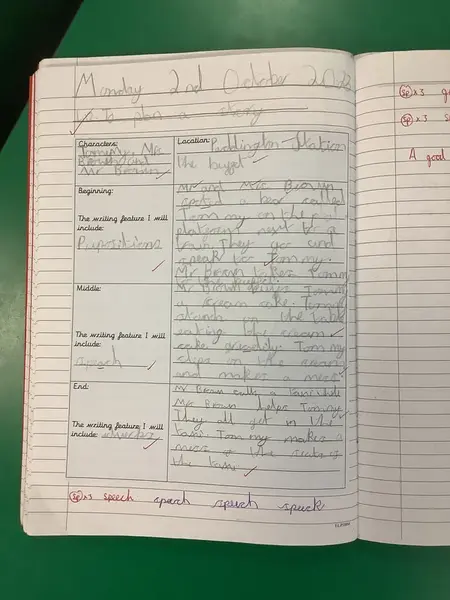 Monday 2nd October 2023
To plan a story
Characters:
Tommy, Mrs
Brown and
Mr Brown
Location: Paddington Station
the buffet
Beginning:
The writing feature I will
include:
Prepositions
Mr and Mrs Brown
spotted a bear called
Tommy on the
platform next to a
train. They go and
speak to Tommy.
Mr Brown takes Tommy
to the
Middle:
The writing feature I will
include:
speach
Mr Brown Tommy
a cream cake. Tommy
stands on the table
eating the cream
cake greedily. Tommy
steps in the cream
and makes a mess
End:
The writing feature I will
include:
Mr Brown calls a taxi while
Mrs Brown helps Tommy
They all get in the
taxi. Tommy makes a
mess of the seats of
the taxi
sp x3 speech speach speech
sp x3
sp x3
A goal